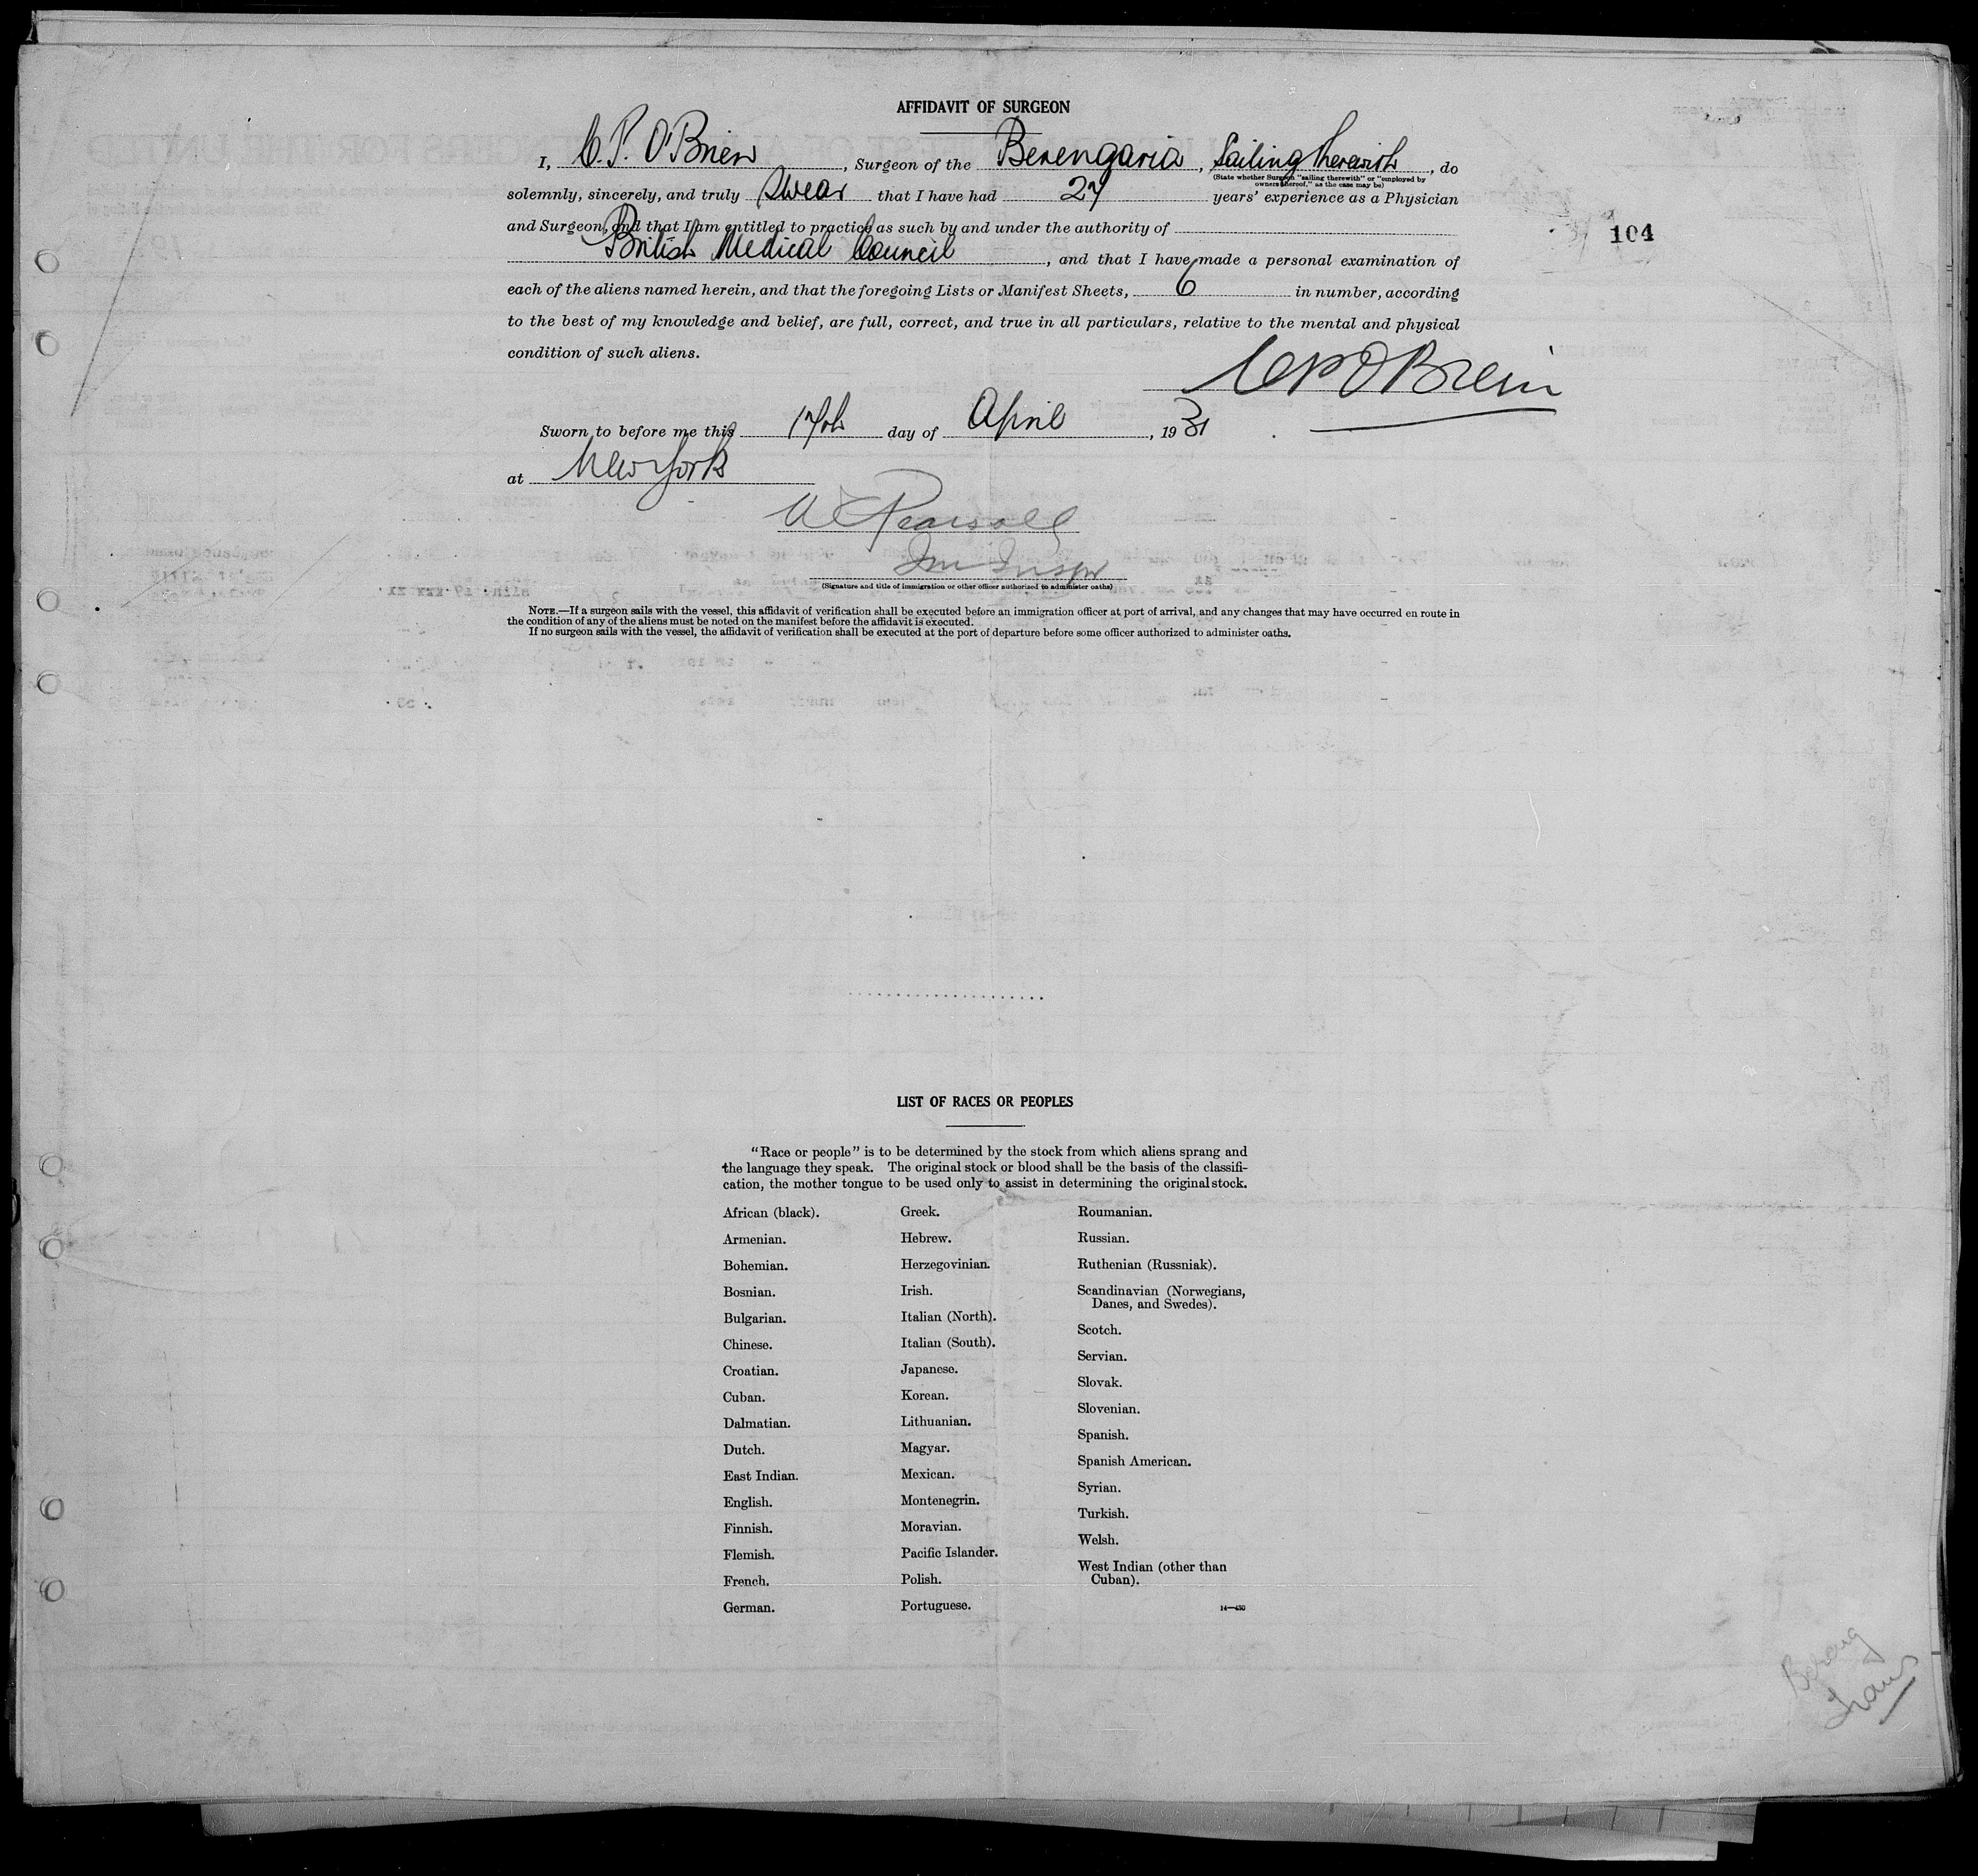 AFFIDAVIT OF SURGEON
I, C. P. O'Brien, Surgeon of the Berengaria, Sailing therewith, do
(State whether Surgeon "sailing therewith" or "employed by
owners thereof," as the case may be)
solemnly, sincerely, and truly swear that I have had 27 years' experience as a Physician
and Surgeon, and that I am entitled to practice as such by and under the authority of
British Medical Council, and that I have made a personal examination of
104
each of the aliens named herein, and that the foregoing Lists or Manifest Sheets, 6 in number, according
to the best of my knowledge and belief, are full, correct, and true in all particulars, relative to the mental and physical
condition of such aliens.
C P O'Brien
Sworn to before me this 17th day of April, 1931
at New York
Pearsall
Imm Inspr
(Signature and title of immigration or other officer authorized to administer oaths)
NOTE.—If a surgeon sails with the vessel, this affidavit of verification shall be executed before an immigration officer at port of arrival, and any changes that may have occurred en route in
the condition of any of the aliens must be noted on the manifest before the affidavit is executed.
If no surgeon sails with the vessel, the affidavit of verification shall be executed at the port of departure before some officer authorized to administer oaths.
LIST OF RACES OR PEOPLES
"Race or people" is to be determined by the stock from which aliens sprang and
the language they speak. The original stock or blood shall be the basis of the classifi-
cation, the mother tongue to be used only to assist in determining the original stock.
African (black).
Armenian.
Bohemian.
Bosnian.
Bulgarian.
Chinese.
Croatian.
Cuban.
Dalmatian.
Dutch.
East Indian.
English.
Finnish.
Flemish.
French.
German.
Greek.
Hebrew.
Herzegovinian.
Irish.
Italian (North).
Italian (South).
Japanese.
Korean.
Lithuanian.
Magyar.
Mexican.
Montenegrin.
Moravian.
Pacific Islander.
Polish.
Portuguese.
Roumanian.
Russian.
Ruthenian (Russniak).
Scandinavian (Norwegians,
Danes, and Swedes).
Scotch.
Servian.
Slovak.
Slovenian.
Spanish.
Spanish American.
Syrian.
Turkish.
Welsh.
West Indian (other than
Cuban).
14—430